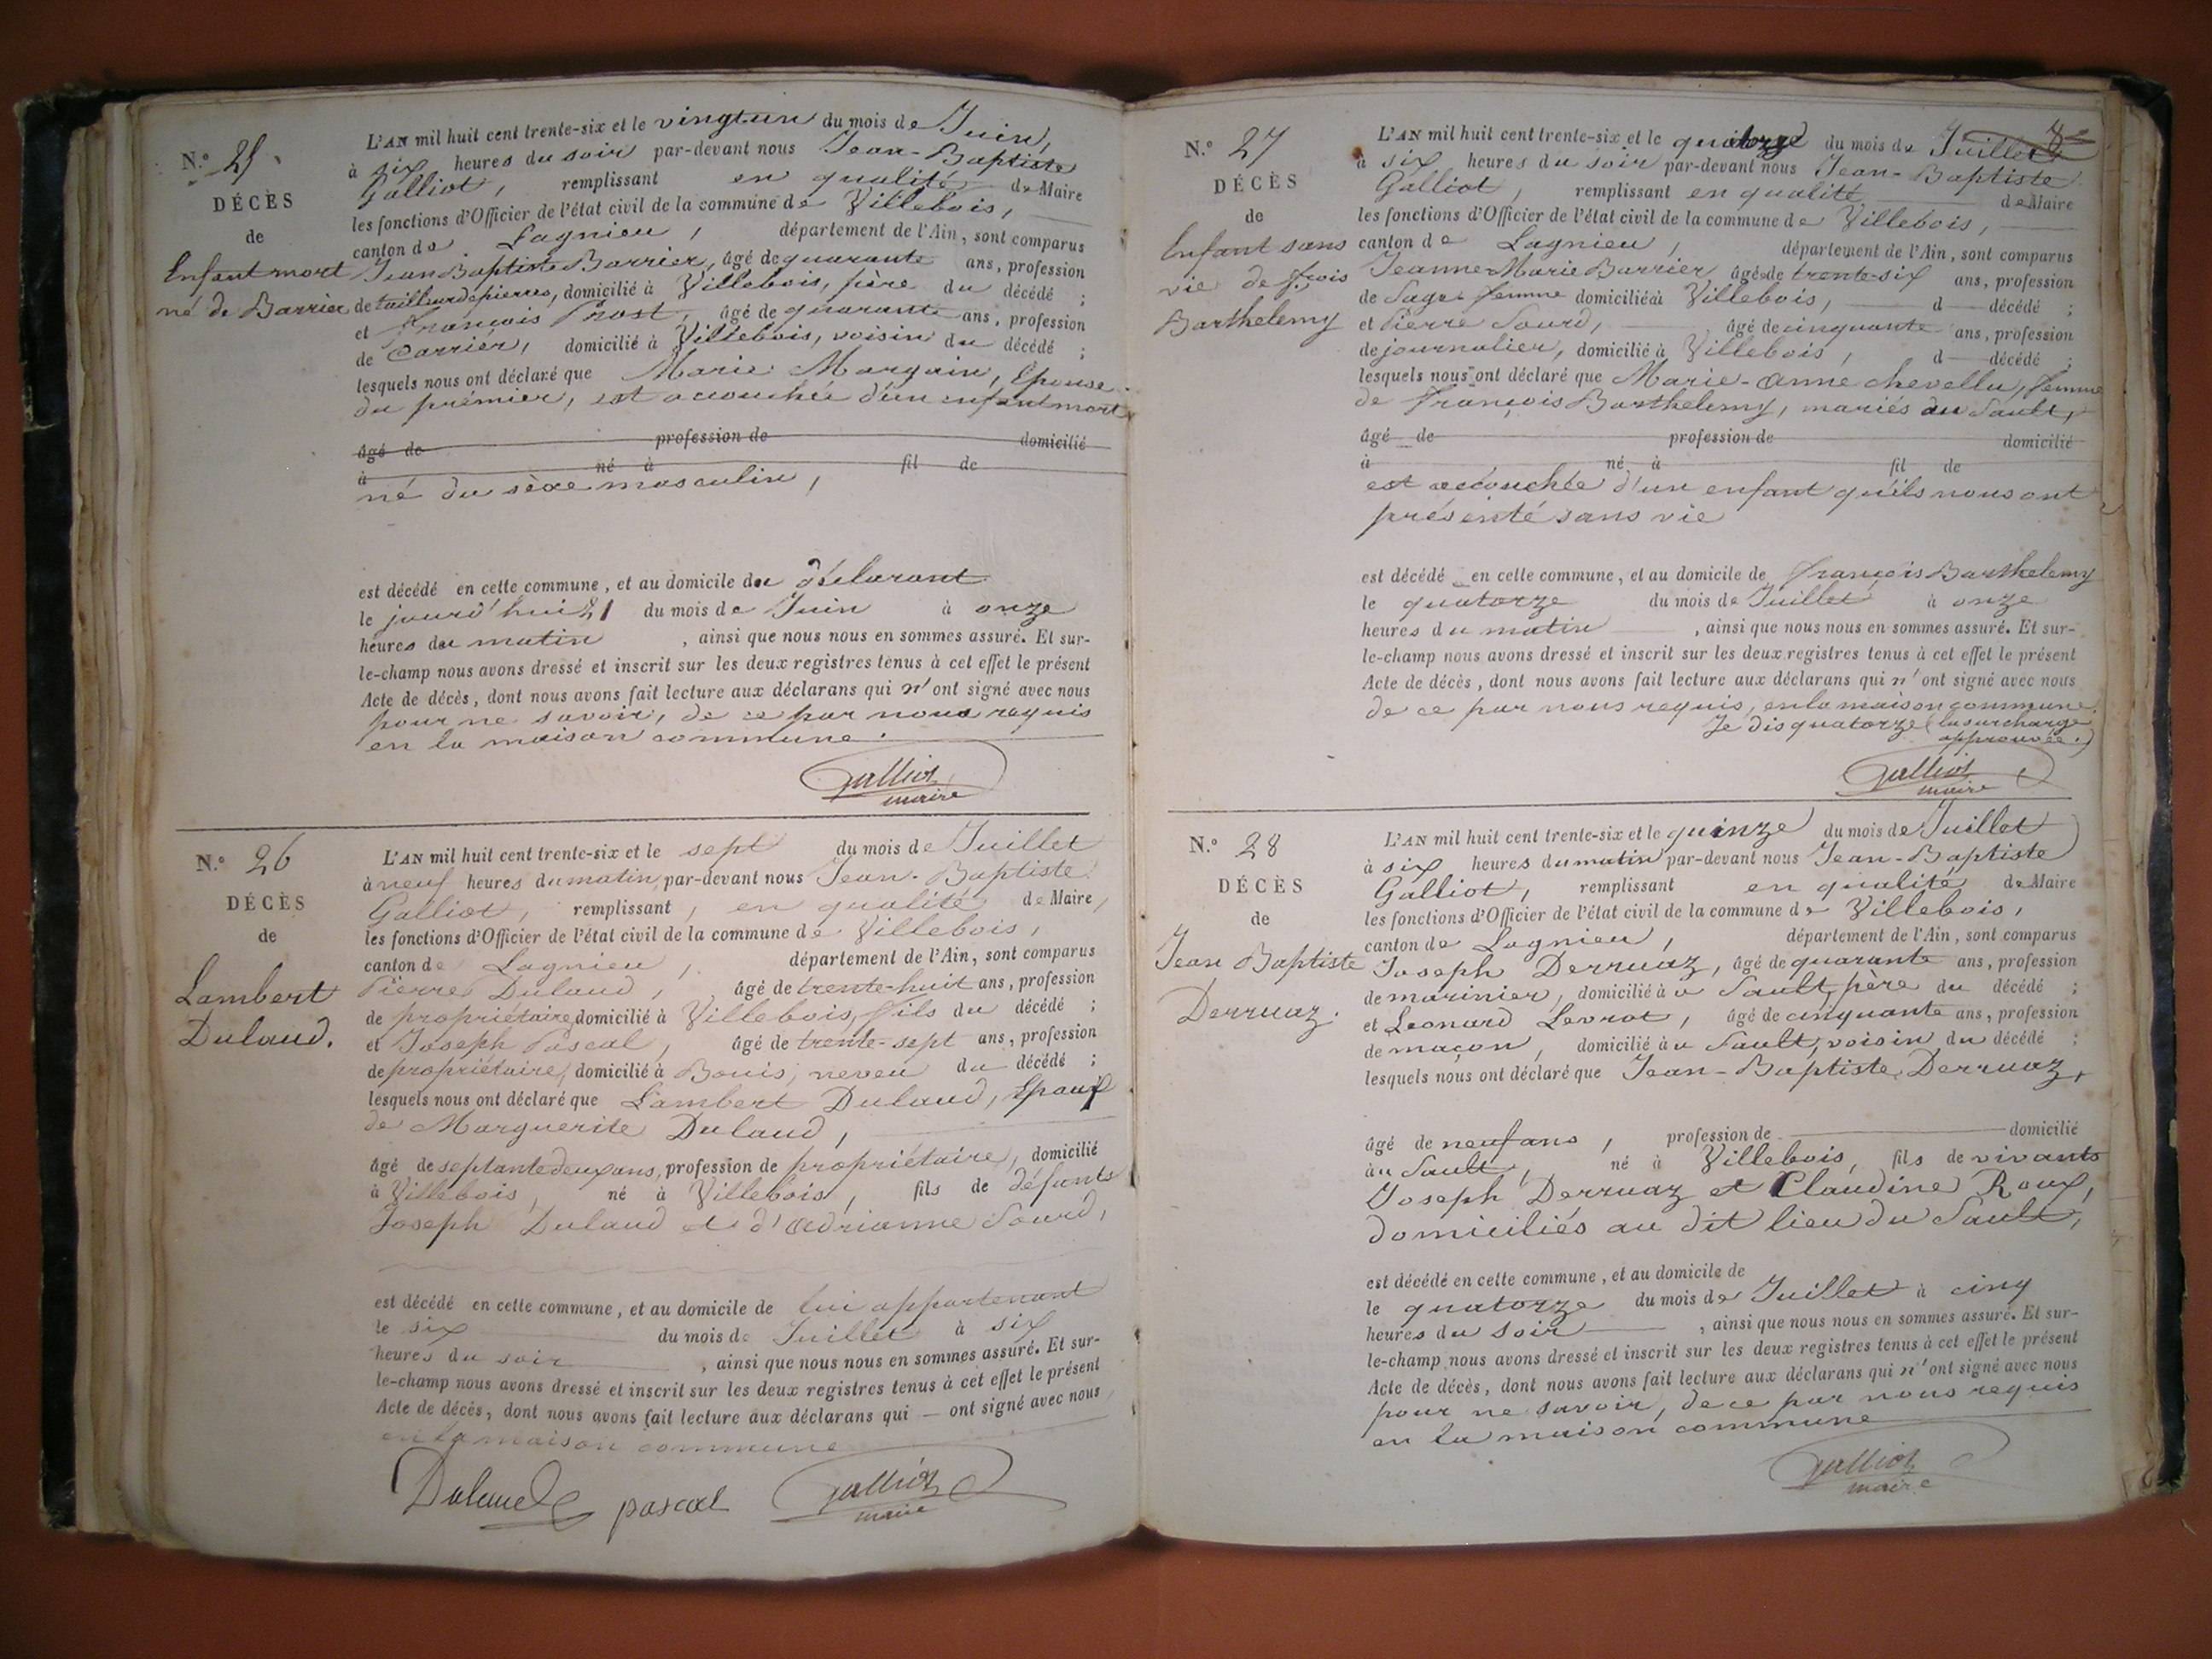 N.º 25
DÉCÈS
de
Enfant mort
né de Barrier
L'AN mil huit cent trente-six et le vingt un du mois de Juin,
à six heures du soir par-devant nous Jean-Baptiste
Galliot, remplissant en qualité de Maire
les fonctions d'Officier de l'état civil de la commune de Villebois,
canton de Lagnieu, département de l'Ain, sont comparus
Jean Baptiste Barrier, âgé de quarante ans, profession
de tailleur de pierres, domicilié à Villebois, père du décédé ;
et François Prost, âgé de quarante ans, profession
de Carrier, domicilié à Villebois, voisin du décédé ;
lesquels nous ont déclaré que Marie Margain, Epouse
du premier, est accouchée d'un enfant mort
âgé de profession de domicilié
à né à fil de
né du sèxe masculin,
est décédé en cette commune, et au domicile du déclarant
le jourd'hui 21 du mois de Juin à onze
heures du matin, ainsi que nous nous en sommes assuré. Et sur-
le-champ nous avons dressé et inscrit sur les deux registres tenus à cet effet le présent
Acte de décès, dont nous avons fait lecture aux déclarans qui n'ont signé avec nous
pour ne savoir, de ce par nous requis
en la maison commune.
Galliot
maire
N.º 26
DÉCÈS
de
Lambert
Dulaud.
L'AN mil huit cent trente-six et le sept du mois de Juillet
à neuf heures du matin, par-devant nous Jean-Baptiste
Galliot, remplissant, en qualité de Maire,
les fonctions d'Officier de l'état civil de la commune de Villebois,
canton de Lagnieu, département de l'Ain, sont comparus
Pierre Dulaud, âgé de trente-huit ans, profession
de propriétaire, domicilié à Villebois, fils du décédé ;
et Joseph Pascal, âgé de trente-sept ans, profession
de propriétaire, domicilié à Bouis, neveu du décédé ;
lesquels nous ont déclaré que Lambert Dulaud, Epoux
de Marguerite Dulaud,
âgé de septante deux ans, profession de propriétaire, domicilié
à Villebois, né à Villebois, fils de défunts
Joseph Dulaud et d'Adrianne Sourd,
est décédé en cette commune, et au domicile de lui appartenant
le six du mois de Juillet à six
heures du soir, ainsi que nous nous en sommes assuré. Et sur-
le-champ nous avons dressé et inscrit sur les deux registres tenus à cet effet le présent
Acte de décès, dont nous avons fait lecture aux déclarans qui — ont signé avec nous
en la maison commune
Dulaud pascal Galliot
maire
8
N.º 27
DÉCÈS
de
Enfant sans
vie de fçois
Barthelemy
L'AN mil huit cent trente-six et le quatorze du mois de Juillet
à six heures du soir par-devant nous Jean-Baptiste
Galliot, remplissant en qualité de Maire
les fonctions d'Officier de l'état civil de la commune de Villebois,
canton de Lagnieu, département de l'Ain, sont comparus
Jeanne Marie Barrier âgée de trente-six ans, profession
de Sage femme domiciliée à Villebois, d décédé ;
et Pierre Sourd, âgé de cinquante ans, profession
de journalier, domicilié à Villebois, d décédé ;
lesquels nous ont déclaré que Marie-Anne Chevellu, femme
de François Barthelemy, mariés au Sault,
âgé de profession de domicilié
à né à fil de
est accouchée d'un enfant qu'ils nous ont
présenté sans vie
est décédé en cette commune, et au domicile de François Barthelemy
le quatorze du mois de Juillet à onze
heures du matin, ainsi que nous nous en sommes assuré. Et sur-
le-champ nous avons dressé et inscrit sur les deux registres tenus à cet effet le présent
Acte de décès, dont nous avons fait lecture aux déclarans qui n'ont signé avec nous
de ce par nous requis, en la maison commune.
Je dis quatorze (la surcharge
approuvée.)
Galliot
maire
N.º 28
DÉCÈS
de
Jean Baptiste
Derruaz.
L'AN mil huit cent trente-six et le quinze du mois de Juillet
à six heures du matin par-devant nous Jean-Baptiste
Galliot, remplissant en qualité de Maire
les fonctions d'Officier de l'état civil de la commune de Villebois,
canton de Lagnieu, département de l'Ain, sont comparus
Joseph Derruaz, âgé de quarante ans, profession
de marinier, domicilié au Sault, père du décédé ;
et Leonard Levrat, âgé de cinquante ans, profession
de maçon, domicilié au Sault, voisin du décédé ;
lesquels nous ont déclaré que Jean-Baptiste Derruaz,
âgé de neuf ans, profession de domicilié
au Sault, né à Villebois, fils de vivants
Joseph Derruaz et Claudine Roux,
domiciliés au dit lieu du Sault,
est décédé en cette commune, et au domicile de
le quatorze du mois de Juillet à cinq
heures du soir, ainsi que nous nous en sommes assuré. Et sur-
le-champ nous avons dressé et inscrit sur les deux registres tenus à cet effet le présent
Acte de décès, dont nous avons fait lecture aux déclarans qui n'ont signé avec nous
pour ne savoir, de ce par nous requis
en la maison commune
Galliot
maire